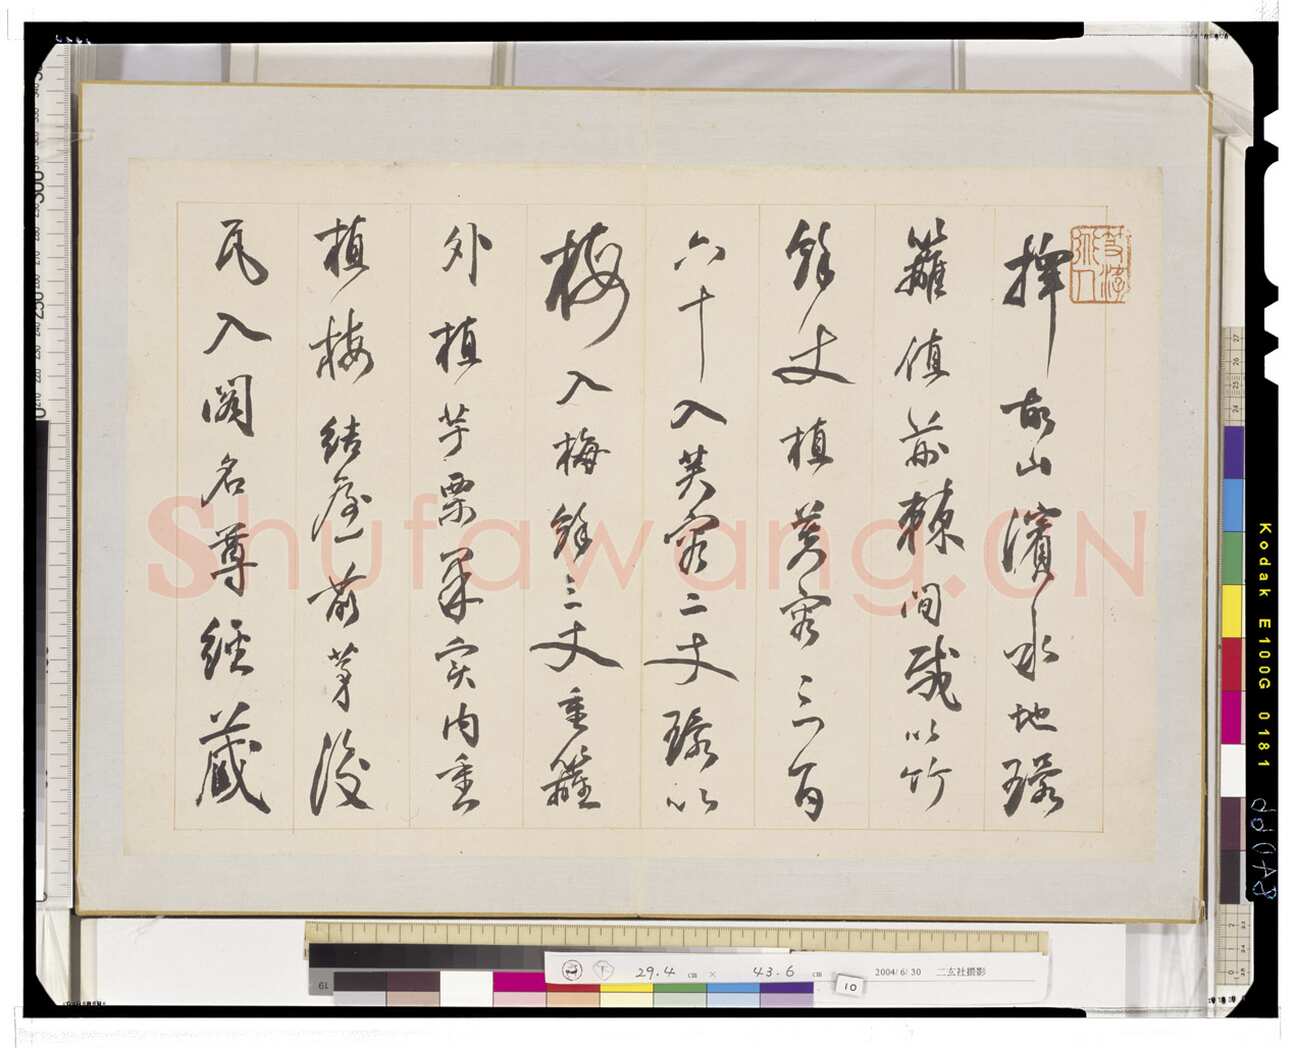 擇故山濱水地環
籬植荊棘間栽以竹
餘丈植芙容三百
六十入芙容二丈環以
梅入梅餘三丈重籬
外植芋栗果实内重
植梅結屋前茅後
瓦入閣名尊經藏
Shufawang.CN
Kodak E100G 0181
29.4 cm × 43.6 cm
2004/6/30 二玄社撮影
10
19